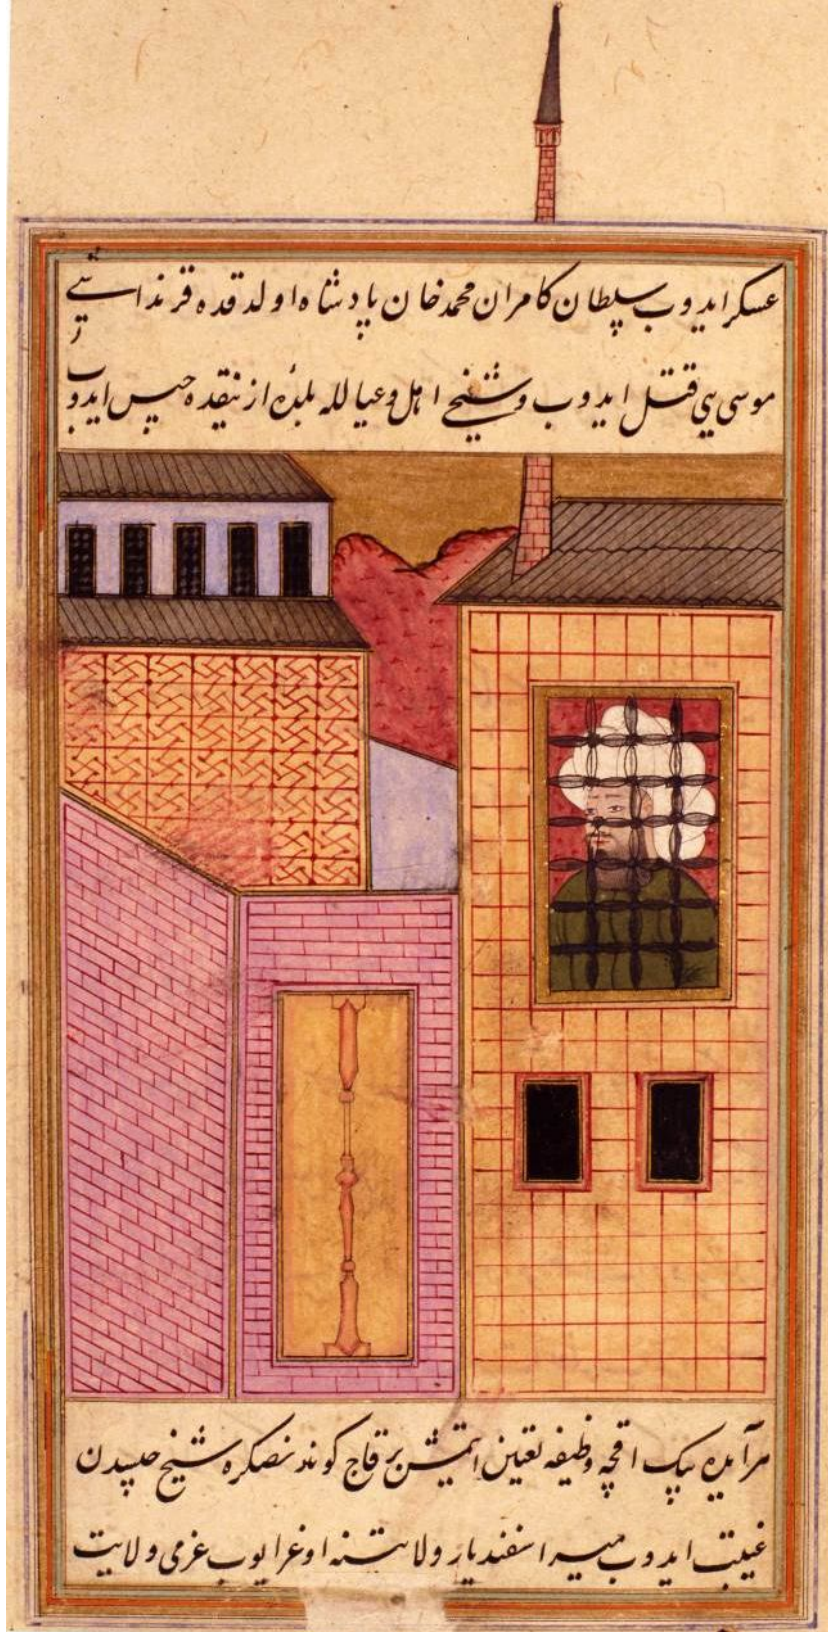 عسكر ايدوب سلطان كامران محمد خان پادشاه اولدقده قرنداشی
موسی يی قتل ايدوب و شيخی اهل و عيالله بلدهٔ ازنيقده حبس ايدوب
هر آيده بيك اقچه وظيفه تعيين ايتمش بر قاچ كوندنصكره شيخ حبسدن
غيبت ايدوب مير اسفنديار ولايتنه اوغرايوب عزمی ولايت